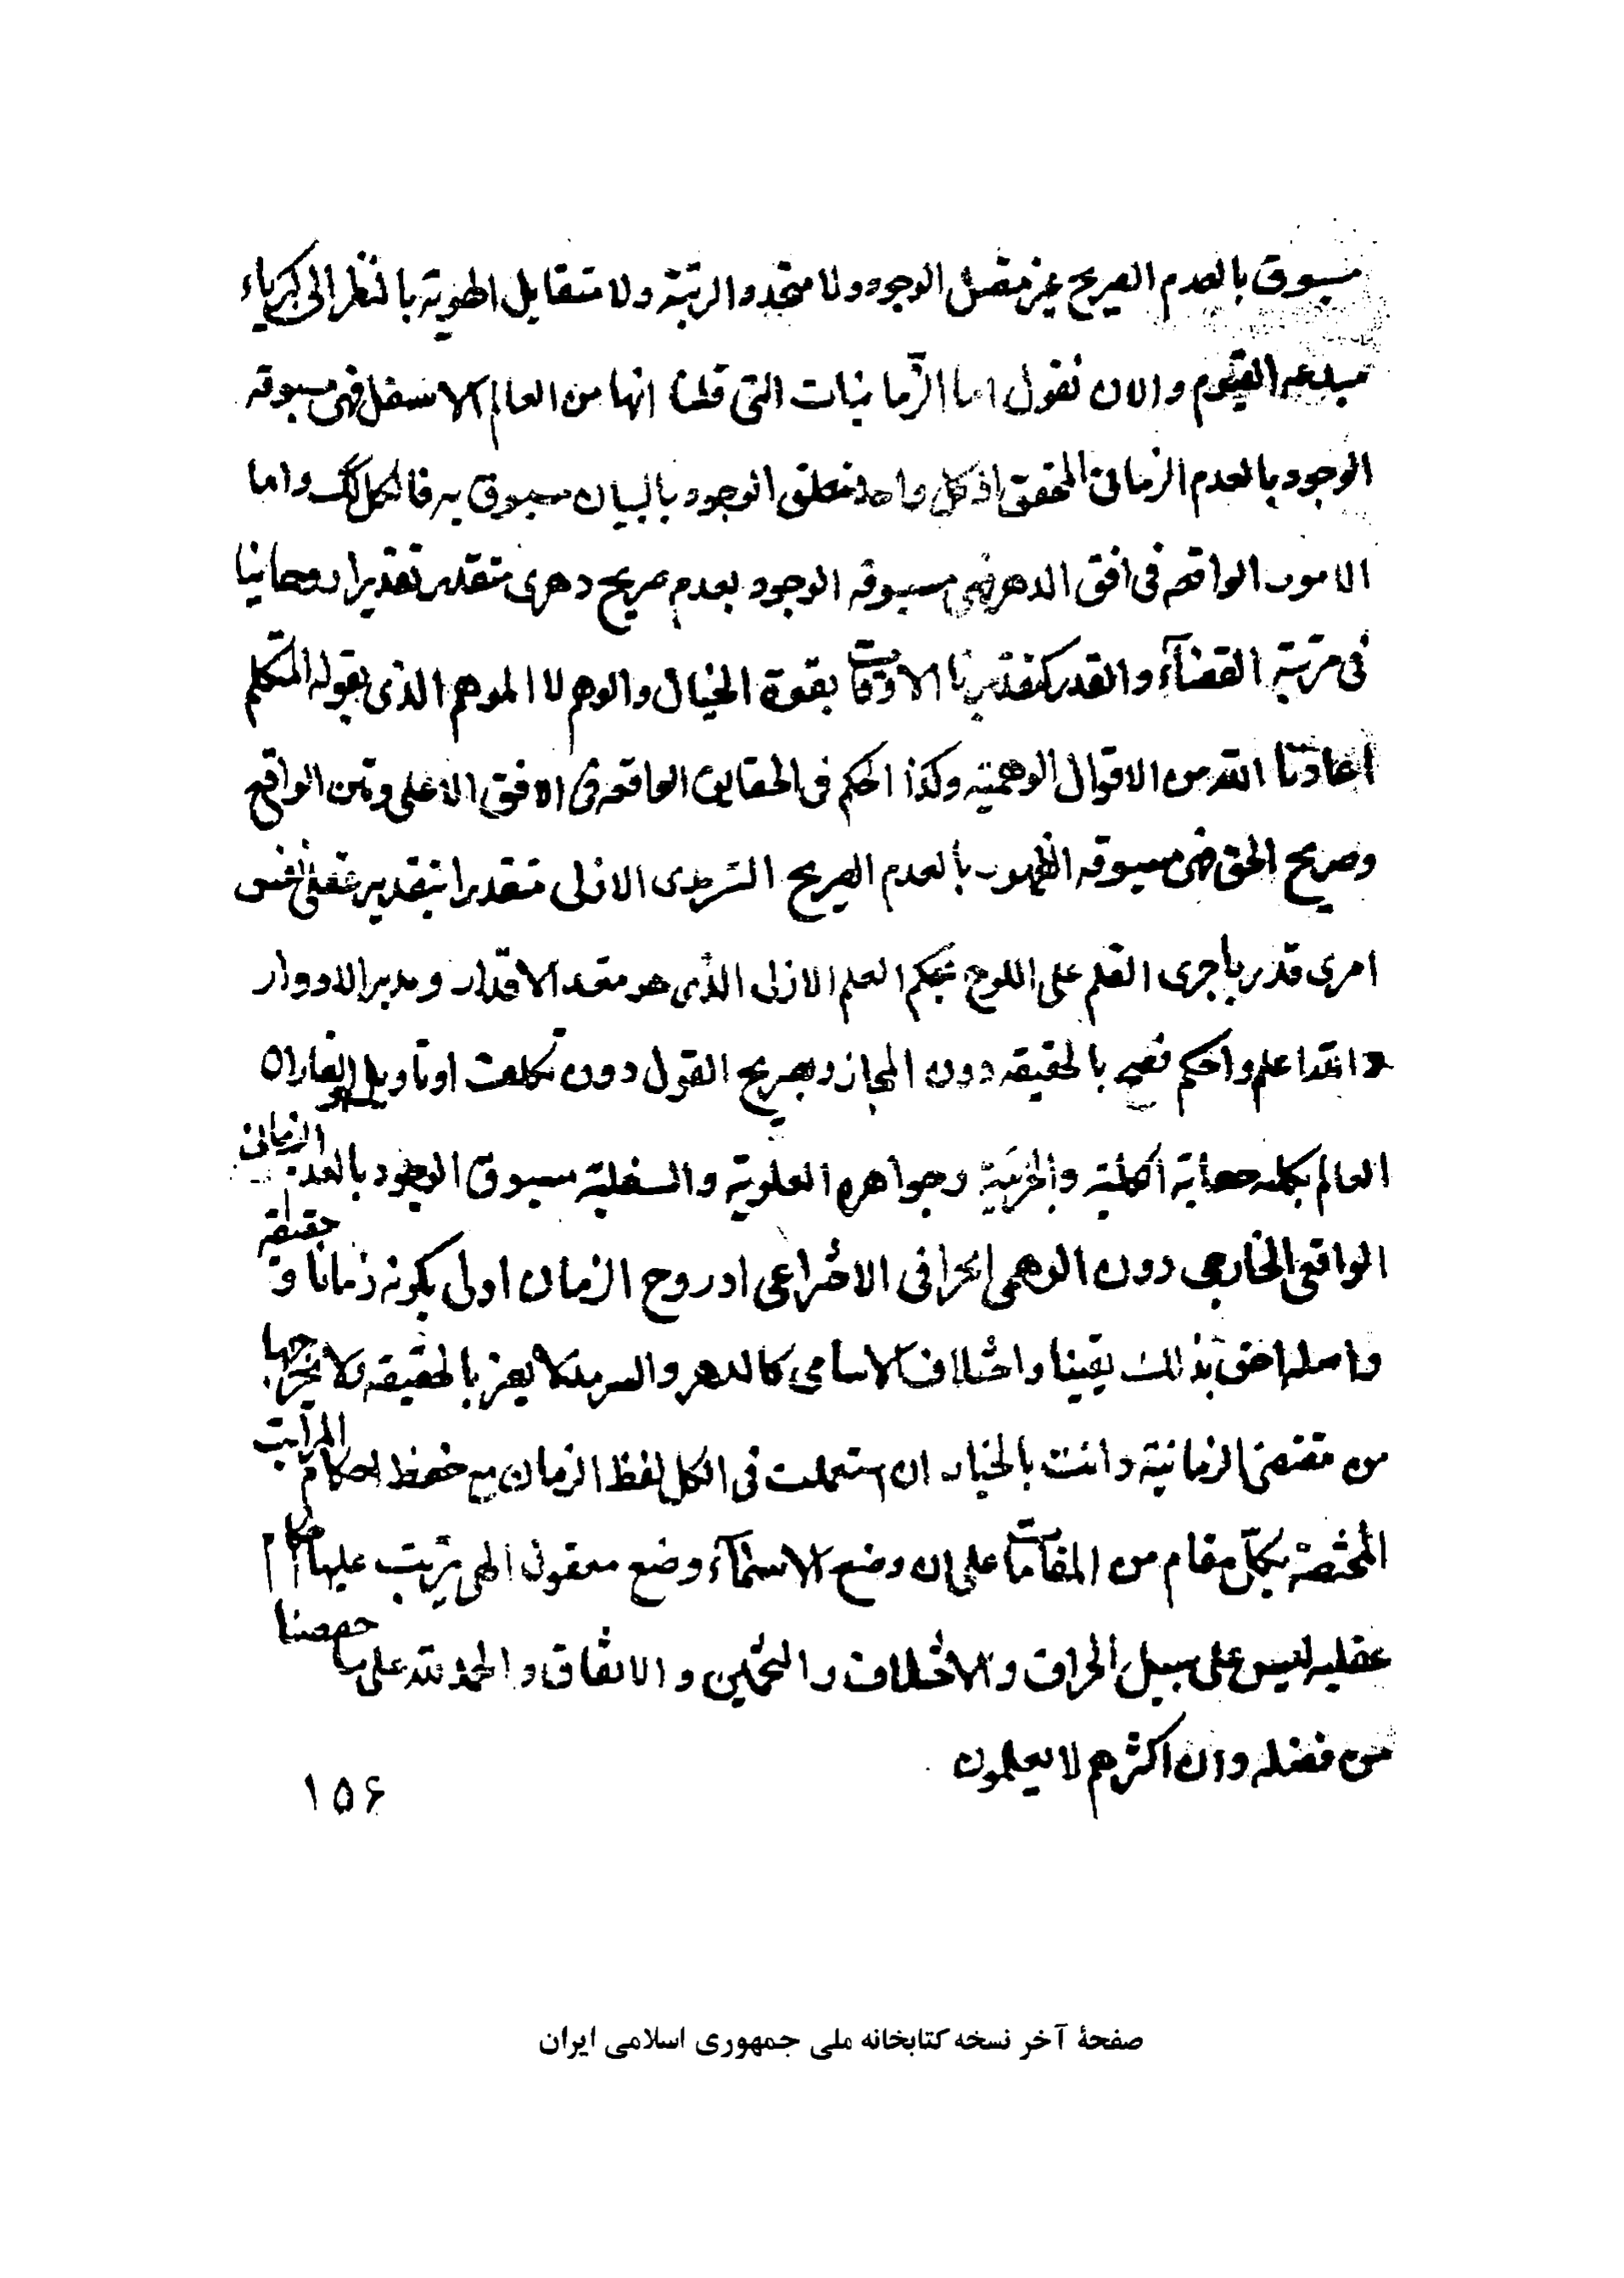 مسبوق بالعدم الصريح غير متصل الوجود ولا متحد الرتبة ولا متقابل الهوية بالنظر الى كبرياء
مبدعه القيوم والان نقول اما الزمانيات التى قلنا انها من العالم الاسفل فهى مسبوقه
الوجود بالعدم الزمانى المحقق اذ كل واحد مطلق الوجود بالبيان مسبوق به فالكل كك واما
الامور الواقعه فى افق الدهر فهى مسبوقه الوجود بعدم صريح دهرى متقدر تقديرا روحانيا
فى مرتبة القضآء والقدر كتقديرنا الاوقات بقوة الخيال والوهم لا الموهم الذى يقوله المتكلم
اعاذنا الله من الاقوال الوهميه وكذا الحكم فى الحقايق الواقعه فى الافق الاعلى ومتن الواقع
وصريح الحق فهى مسبوقه الظهور بالعدم الصريح السرمدى الازلى متقدرا بتقدير عقلى نفس
امرى قدر باجرى القلم على اللوح بحكم العلم الازلى الذى هو مقعد الاقدار ومدبر الادوار
والله اعلم واحكم فصح بالحقيقه دون المجاز وبصريح القول دون تكلف او تاويل الغاز ان
العالم بكله الكلية والجزئية وجواهره العلوية والسفلية مسبوق الوجود بالعدم الزمانى
الواقعى الخارجى دون الوهمى الجزافى الاختراعى اذ روح الزمان اولى بكونه زمانا و حقيقه
واصله احق بذلك يقينا واختلاف الاسامى كالدهر والسرمد لا يضر بالحقيقه ولا يخرجها
من مقتضى الزمانية وانت بالخيار ان استعملت فى الكل لفظ الزمان مع حفظ احكام المراتب
المختصة بكل مقام من المقامات على ان وضع الاسمآء وضع معقول الهى يترتب عليها احكام
عقليه ليس على سبيل الجزاف والاختلاف والتخمين والاتفاق والحمد لله على ما خصصنا
من فضله وان اكثرهم لا يعلمون
۱۵۶
صفحهٔ آخر نسخه کتابخانه ملی جمهوری اسلامی ایران